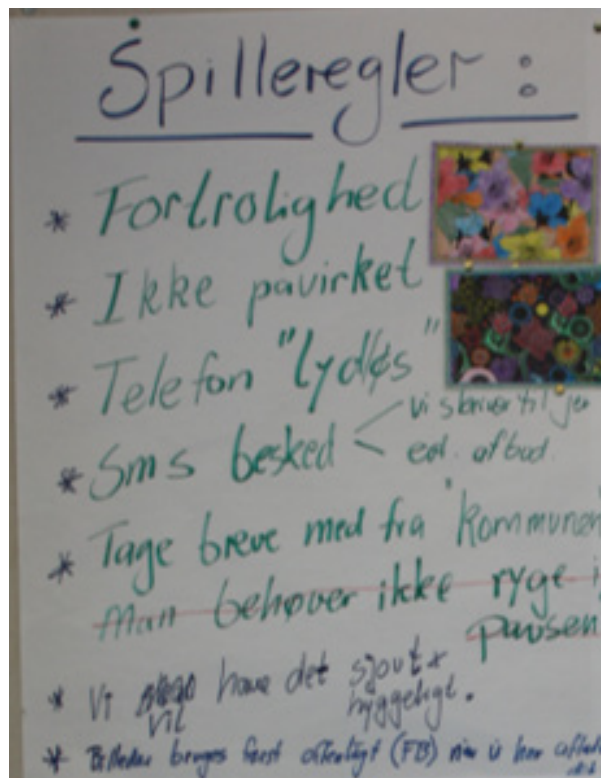 Spilleregler :
* Fortrolighed
* Ikke påvirket
* Telefon "lydløs"
* Sms besked < vi skriver til jer
evt. afbud.
* Tage breve med fra kommunen
Man behøver ikke ryge i
pausen
* Vi vil have det sjovt +
hyggeligt.
* Billeder bruges først offentligt (FB) når vi har aftalt